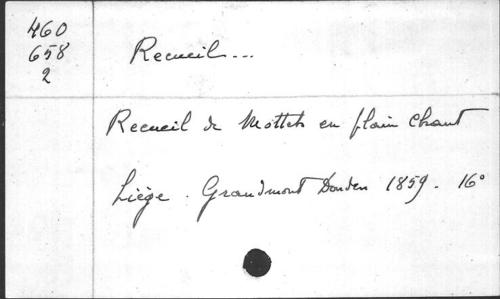 460
658
2
Recueil...
Recueil de Mottets en plain Chant
Liège. Grandmont Donders 1859. 16°